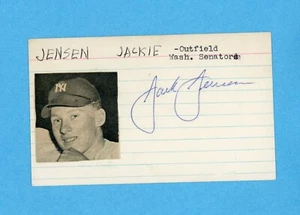 JENSEN JACKIE -Outfield
Wash. Senators
NY
Jack Jensen